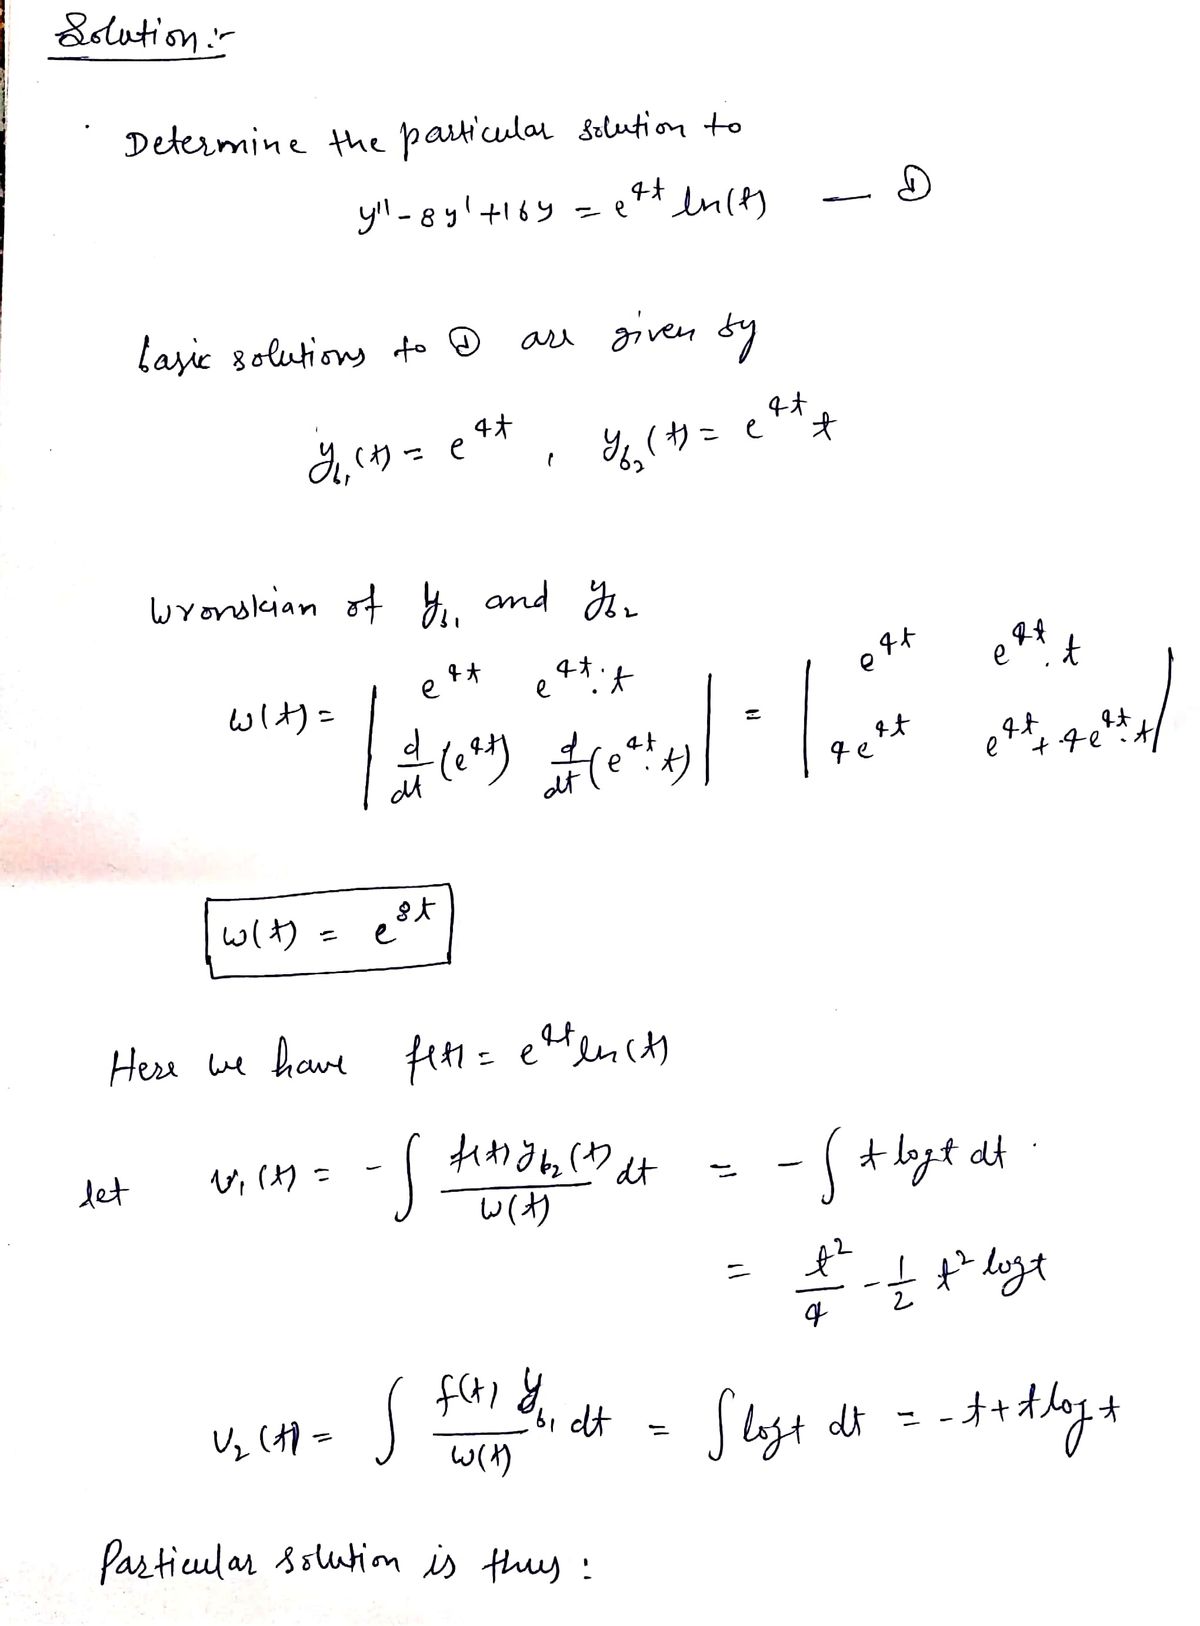 Solution:-
Determine the particular solution to
y'' - 8y' + 16y = e^{4t} ln(t) — ①
basic solutions to ① are given by
y_{b1}(t) = e^{4t} , y_{b2}(t) = e^{4t} t
Wronskian of y_{b1} and y_{b2}
w(t) = | e^{4t} e^{4t}.t ; d/dt (e^{4t}) d/dt (e^{4t}.t) | = | e^{4t} e^{4t}.t ; 4e^{4t} e^{4t} + 4e^{4t}.t |
w(t) = e^{8t}
Here we have f(t) = e^{4t} ln(t)
let v_1(t) = - ∫ f(t) y_{b2}(t) / w(t) dt = - ∫ t log t dt .
= t^2/4 - 1/2 t^2 log t
v_2(t) = ∫ f(t) y_{b1} / w(t) dt = ∫ log t dt = - t + t log t
Particular solution is thus :